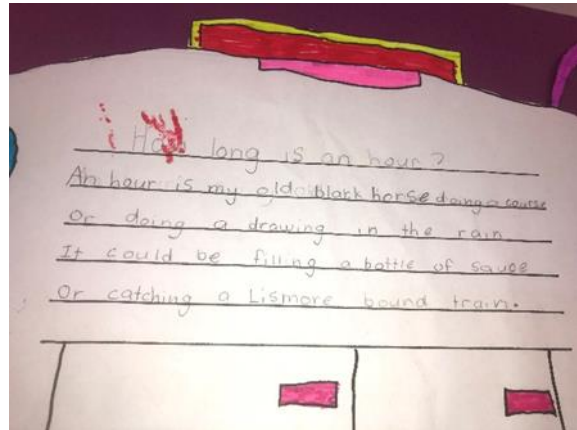 How long is an hour?
An hour is my old black horse doing a course
Or doing a drawing in the rain
It could be filling a bottle of sauce
Or catching a Lismore bound train.